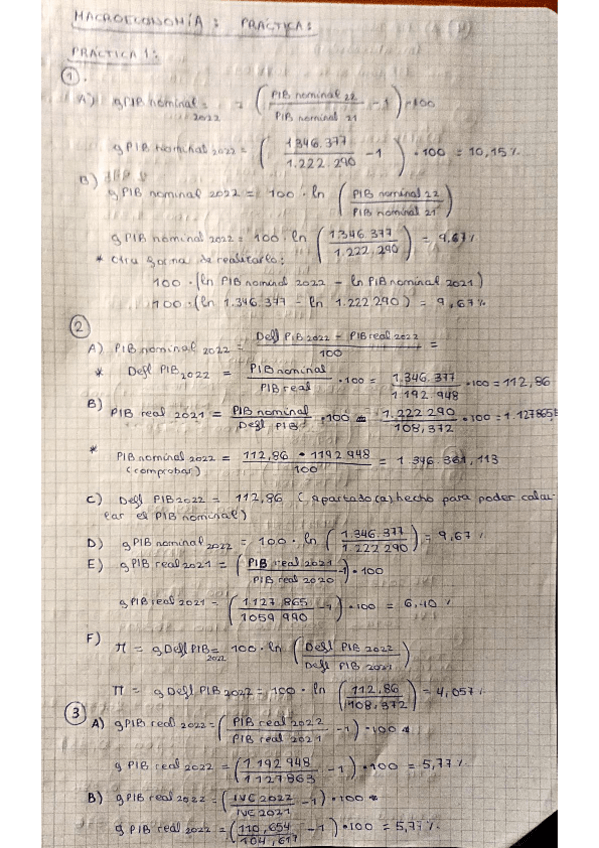 MACROECONOMÍA: PRÁCTICAS
PRÁCTICA 1:
①.
A) gPIB nominal 2022 = = ( PIB nominal 22 / PIB nominal 21 - 1 ) · 100
gPIB nominal 2022 = ( 1346.377 / 1.222.290 - 1 ) · 100 = 10,15 %
B)
gPIB nominal 2022 = 100 · ln ( PIB nominal 22 / PIB nominal 21 )
gPIB nominal 2022 = 100 · ln ( 1.346.377 / 1.222.290 ) = 9,67 %
* Otra forma de realizarlo:
100 · (ln PIB nominal 2022 - ln PIB nominal 2021)
100 · (ln 1.346.377 - ln 1.222.290) = 9,67 %
②
A) PIB nominal 2022 = Defl PIB 2022 - PIB real 2022 / 100 =
* Defl PIB 2022 = PIB nominal / PIB real · 100 = 1.346.377 / 1.192.948 · 100 = 112,86
B) PIB real 2021 = PIB nominal / Defl PIB · 100 = 1.222.290 / 108,372 · 100 = 1.127865,
* PIB nominal 2022 = 112,86 · 1192 948 / 100 = 1 346 361, 113
(comprobar)
C) Defl PIB 2022 = 112,86 (apartado (a) hecho para poder calcu-
lar el PIB nominal)
D) gPIB nominal 2022 = 100 · ln ( 1.346.377 / 1.222 290 ) = 9,67 %
E) gPIB real 2021 = ( PIB real 2021 / PIB real 2020 - 1 ) · 100
gPIB real 2021 = ( 1127,865 / 1059 990 - 1 ) · 100 = 6,40 %
F)
π = gDefl PIB 2022 = 100 · ln ( Defl PIB 2022 / Defl PIB 2021 )
π = gDefl PIB 2022 = 100 · ln ( 112,86 / 108,372 ) = 4,057 %
③
A) gPIB real 2022 = ( PIB real 2022 / PIB real 2021 - 1 ) · 100
gPIB real 2022 = ( 1 192 948 / 1127863 - 1 ) · 100 = 5,77 %
B) gPIB real 2022 = ( IVE 2022 / IVE 2021 - 1 ) · 100
gPIB real 2022 = ( 110,654 / 104,617 - 1 ) · 100 = 5,77 %